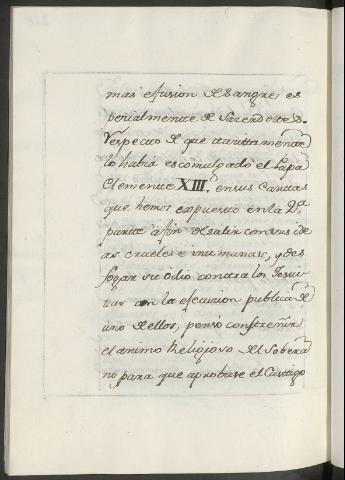 mas efusion de sangre es
pecialmente de Sacerdotes.
Respecto de que
lo havia escomulgado el Papa
Clemente XIII, en sus Cartas
que hemos expuesto en la 2ª
parte a fin de salir con sus ide
as crueles e inumanas, y des
fogar su odio contra los Jesui
tas con la efecucion publica de
uno de ellos, pensó constreñir
el animo Religioso del Sobera
no para que aprobase el Castigo